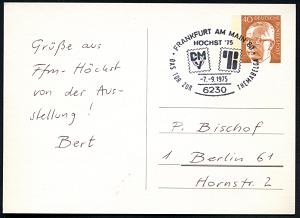 Grüße aus
Ffm-Höchst
von der Aus-
stellung!
Bert
FRANKFURT AM MAIN 80
HÖCHST '75
DAS TOR ZUR THEMABELLA
-7.-9.1975
6230
40
DEUTSCHE BUNDESPOST
P. Bischof
1 Berlin 61
Hornstr. 2